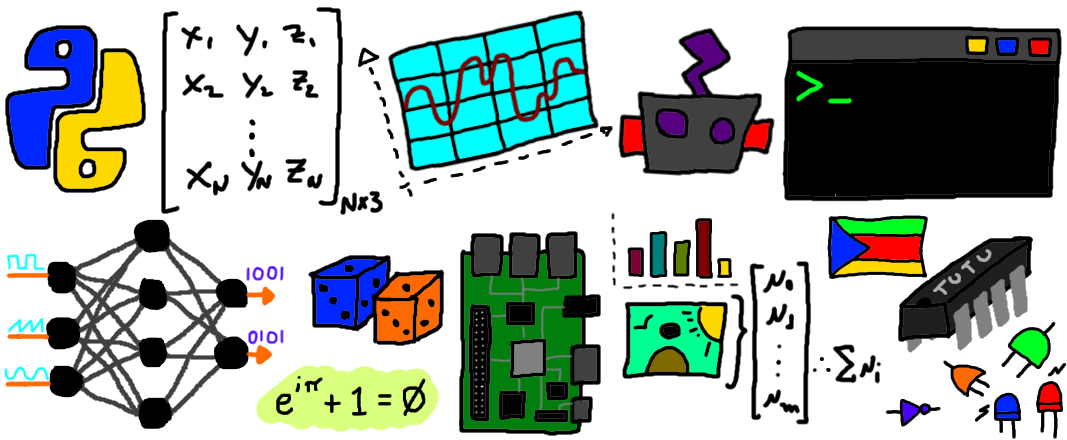 x₁ y₁ z₁
x₂ y₂ z₂
⋮
x_N y_N z_N
N×3
>_
1001
0101
e^{iπ} + 1 = Ø
N₀
N₁
⋮
N_m
∴ ∑ N_i
TUTU